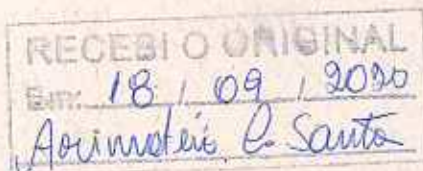 RECEBI O ORIGINAL
Em: 18 / 09 / 2020
Arimateia C. Santos